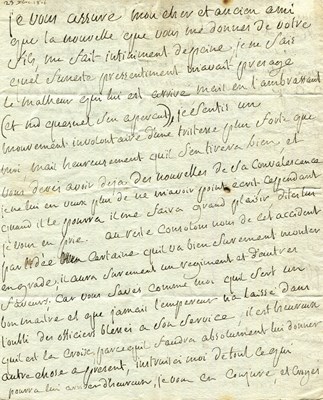 je vous assure mon cher et ancien ami
que la nouvelle que vous me donnes de votre
fils me fait infiniment de peine, je ne sais
quel funeste pressentiment m'avait présagé
le malheur qui lui est arrivé mais en l'embrassant
(et sans s'en apercevoir), je sentis un
mouvement involontaire d'une tristesse plus forte que
moi mais heureusement qu'il s'en tirera bien, et
vous deves avoir deja des nouvelles de sa Convalescence
je ne lui en veux plus de ne m'avoir point ecrit cependant
quand il le pourra il me faira grand plaisir dites lui
je vous en prie. au reste Consolons nous de cet accident
par l'idée bien Certaine qu'il va bien surement monter
en grade, il aura surement un regiment et d'autres
faveurs, Car vous saves comme moi qu'il sert un
bon maitre et que jamais l'empereur n'a laissé dans
l'oubli des officiers blessés a son service. il est heureux
qu'il est la Croix, parce qu'il faudra absolument lui donner
autre chose a present, instruisez moi de tout ce qui
pourra lui arriver d'heureux, je vous en conjure, et croyes